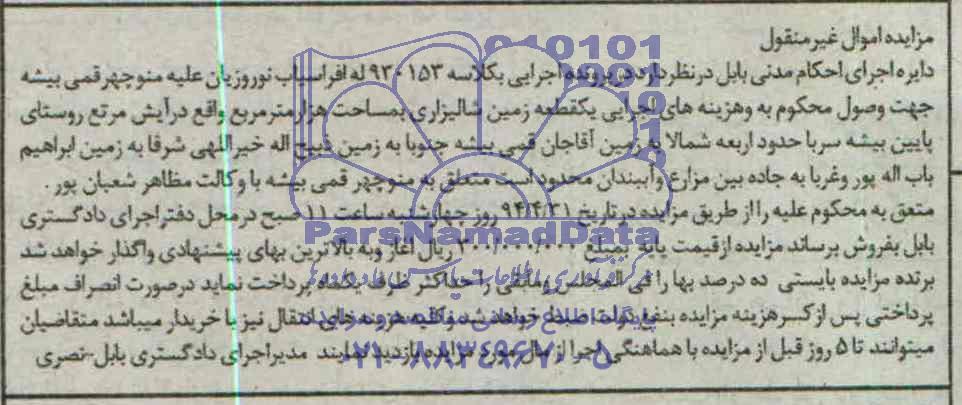 مزایده اموال غیر منقول
دایره اجرای احکام مدنی بابل در نظر دارد در پرونده اجرایی بکلاسه ۹۳۰۱۵۳ له افراسیاب نوروزیان علیه منوچهر قمی بیشه
جهت وصول محکوم به وهزینه های اجرایی یکقطعه زمین شالیزاری بمساحت هزار مترمربع واقع در آیش مرتع روستای
پایین بیشه سر با حدود اربعه شمالا به زمین آقاجان قمی بیشه جنوبا به زمین ذبیح اله خیراللهی شرقا به زمین ابراهیم
باب اله پور وغربا به جاده بین مزارع وآببندان محدود است متعلق به منوچهر قمی بیشه با وکالت مظاهر شعبان پور .
متعق به محکوم علیه را از طریق مزایده در تاریخ ۹۴/۴/۳۱ روز چهارشنبه ساعت ۱۱ صبح در محل دفتر اجرای دادگستری
بابل بفروش برساند مزایده از قیمت پایه بمبلغ ریال آغاز وبه بالاترین بهای پیشنهادی واگذار خواهد شد
برنده مزایده بایستی ده درصد بها را فی المجلس ومابقی را حداکثر ظرف یکماه پرداخت نماید درصورت انصراف مبلغ
پرداختی پس از کسر هزینه مزایده بنفع دولت ضبط خواهد شد وکلیه هزینه های انتقال نیز با خریدار میباشد متقاضیان
میتوانند تا ۵ روز قبل از مزایده با هماهنگی اجرا از مال مورد مزایده بازدید نمایند مدیر اجرای دادگستری بابل-نصری
ParsNamadData
۰۲۱-۸۸۳۴۹۶۷۰-۵